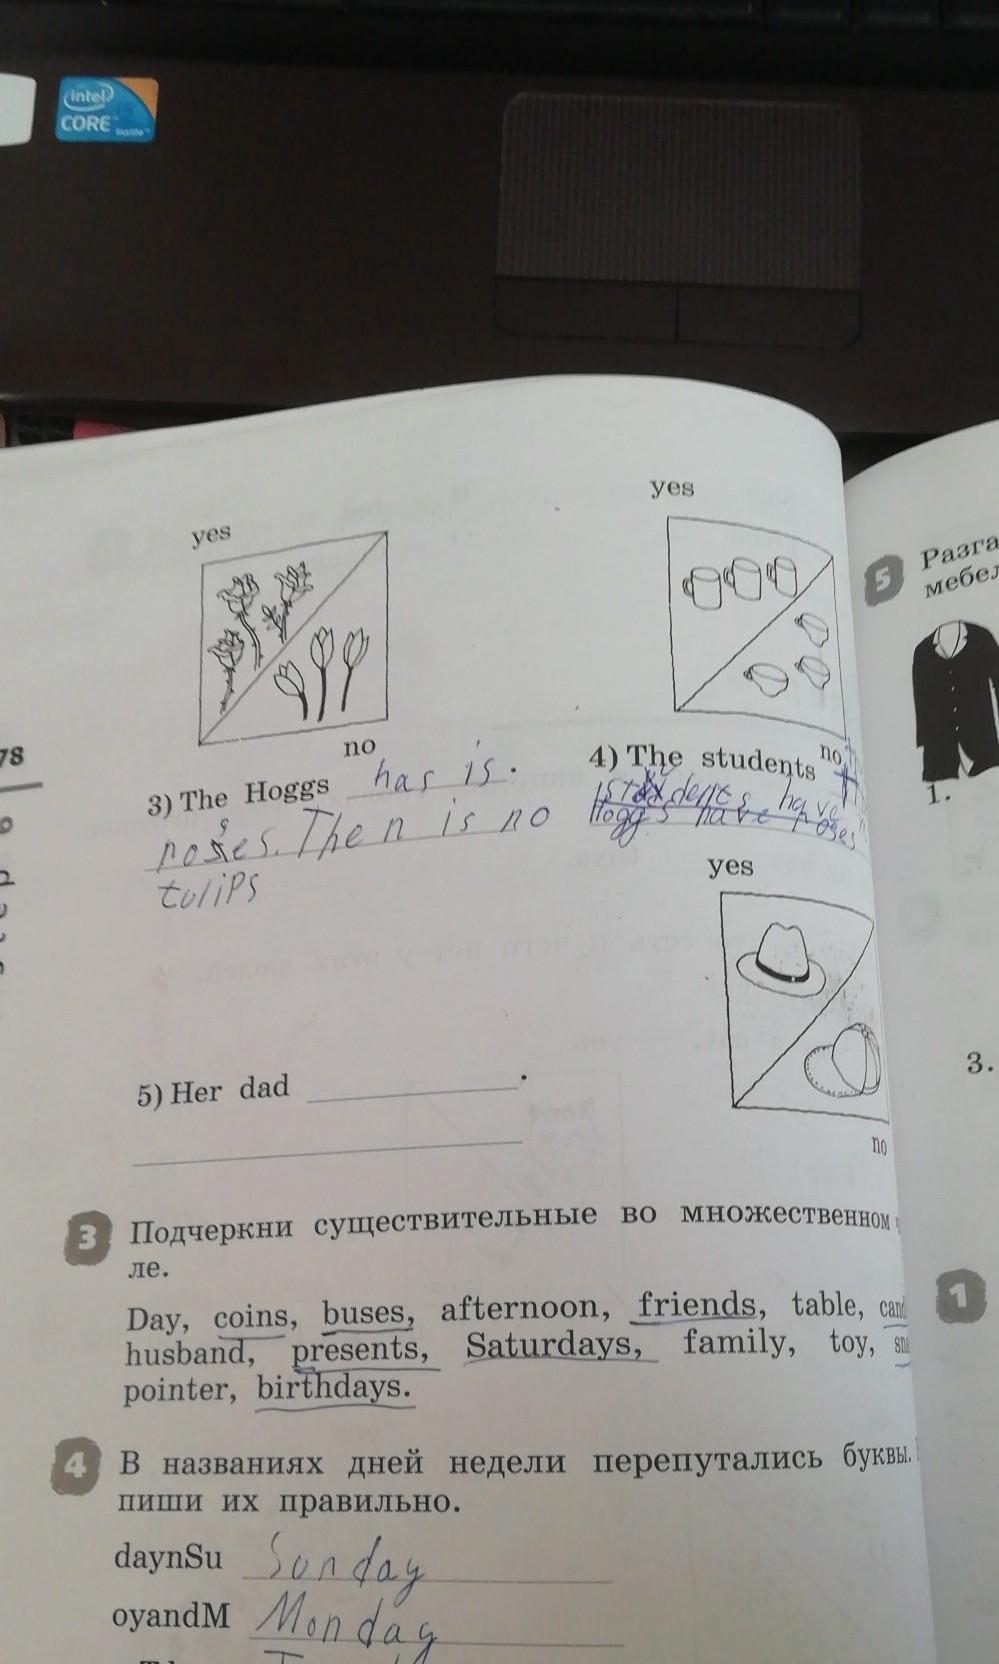 intel
CORE i5
inside™
yes
yes
no
no
3) The Hoggs has is.
roses. Then is no
tulips
4) The students
students have
Hoggs have roses
yes
no
5) Her dad
78
3 Подчеркни существительные во множественном
ле.
Day, coins, buses, afternoon, friends, table,
husband, presents, Saturdays, family, toy,
pointer, birthdays.
4 В названиях дней недели перепутались буквы.
пиши их правильно.
daynSu Sunday
oyandM Monday
5 Разга
мебел
1.
3.
1